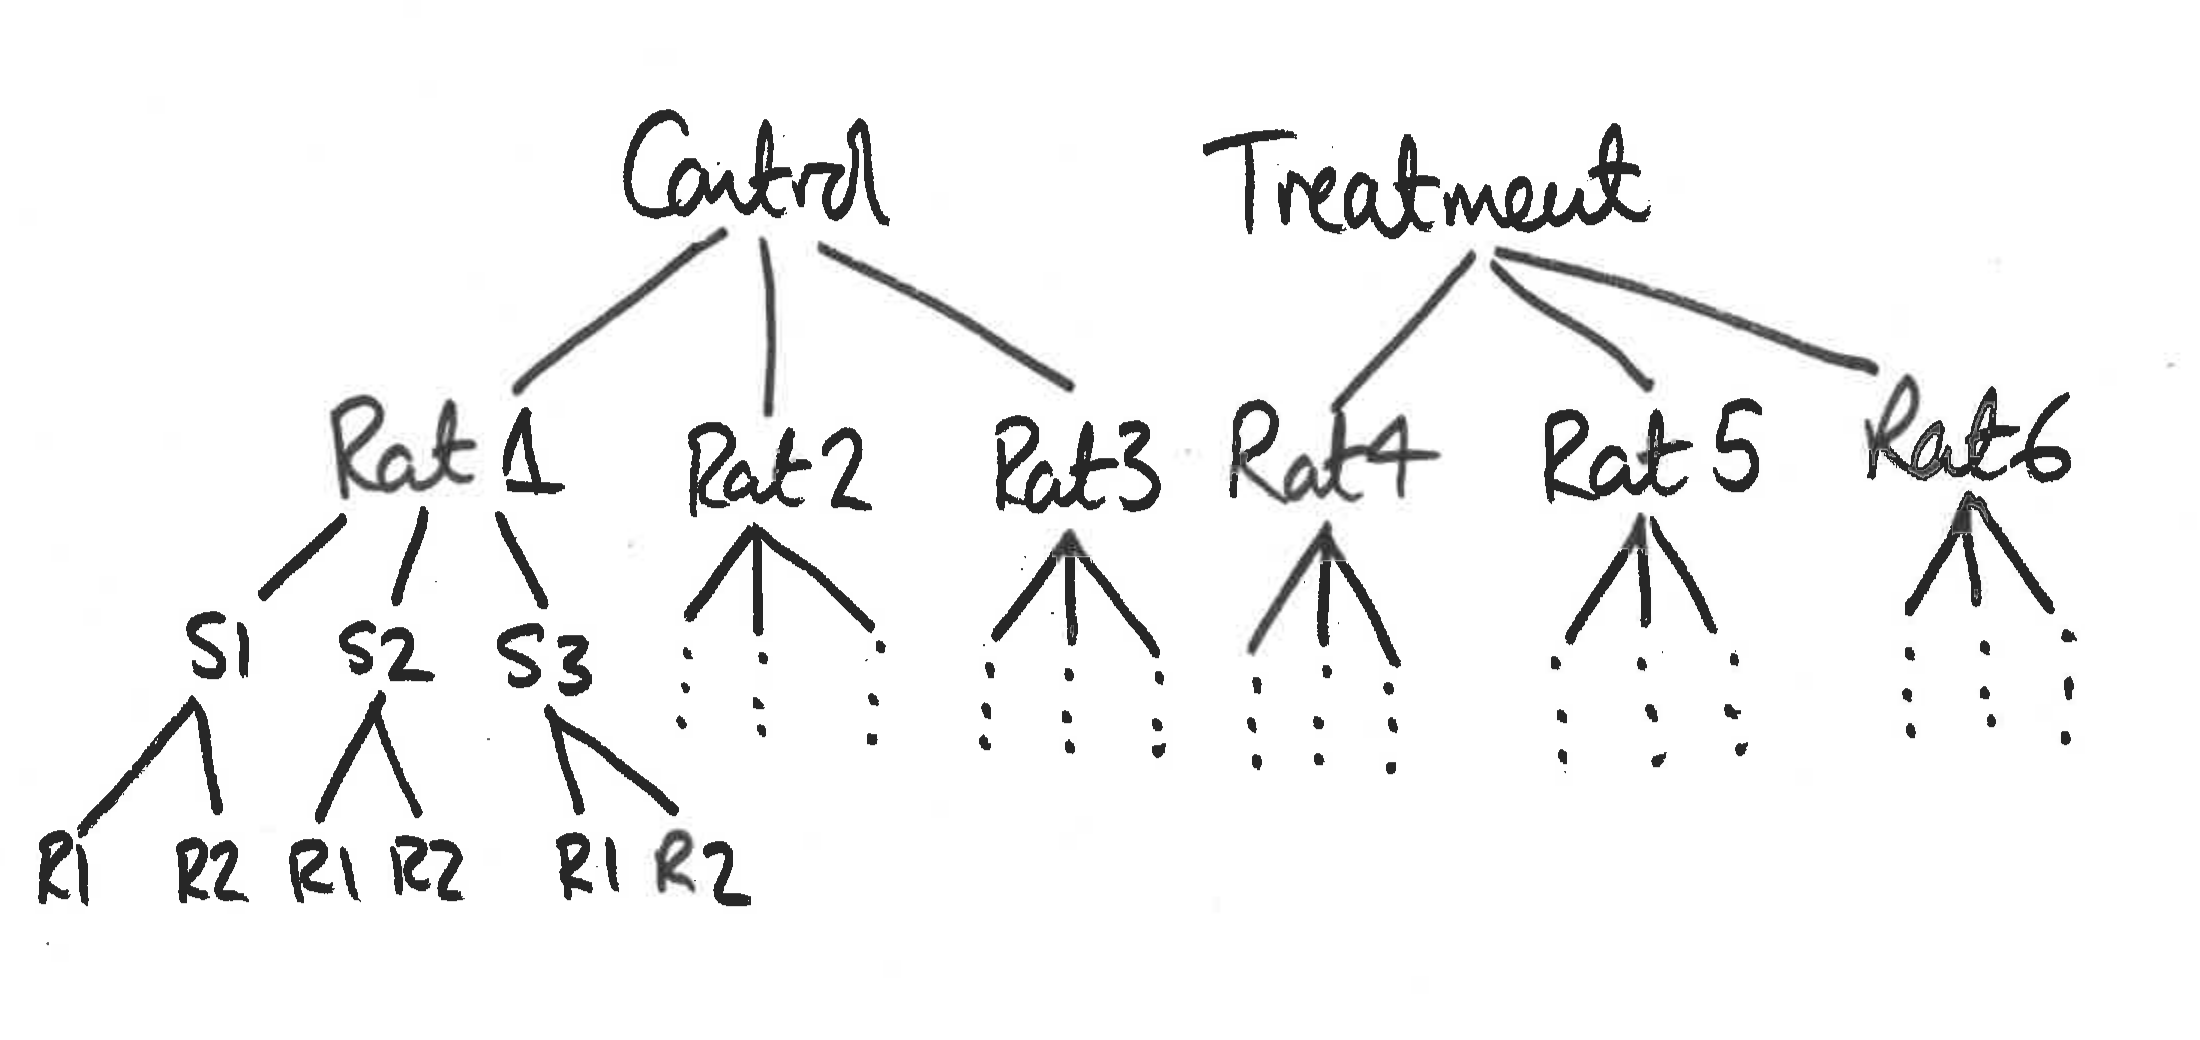 Control Treatment
Rat 1 Rat 2 Rat 3 Rat 4 Rat 5 Rat 6
S1 S2 S3
R1 R2 R1 R2 R1 R2